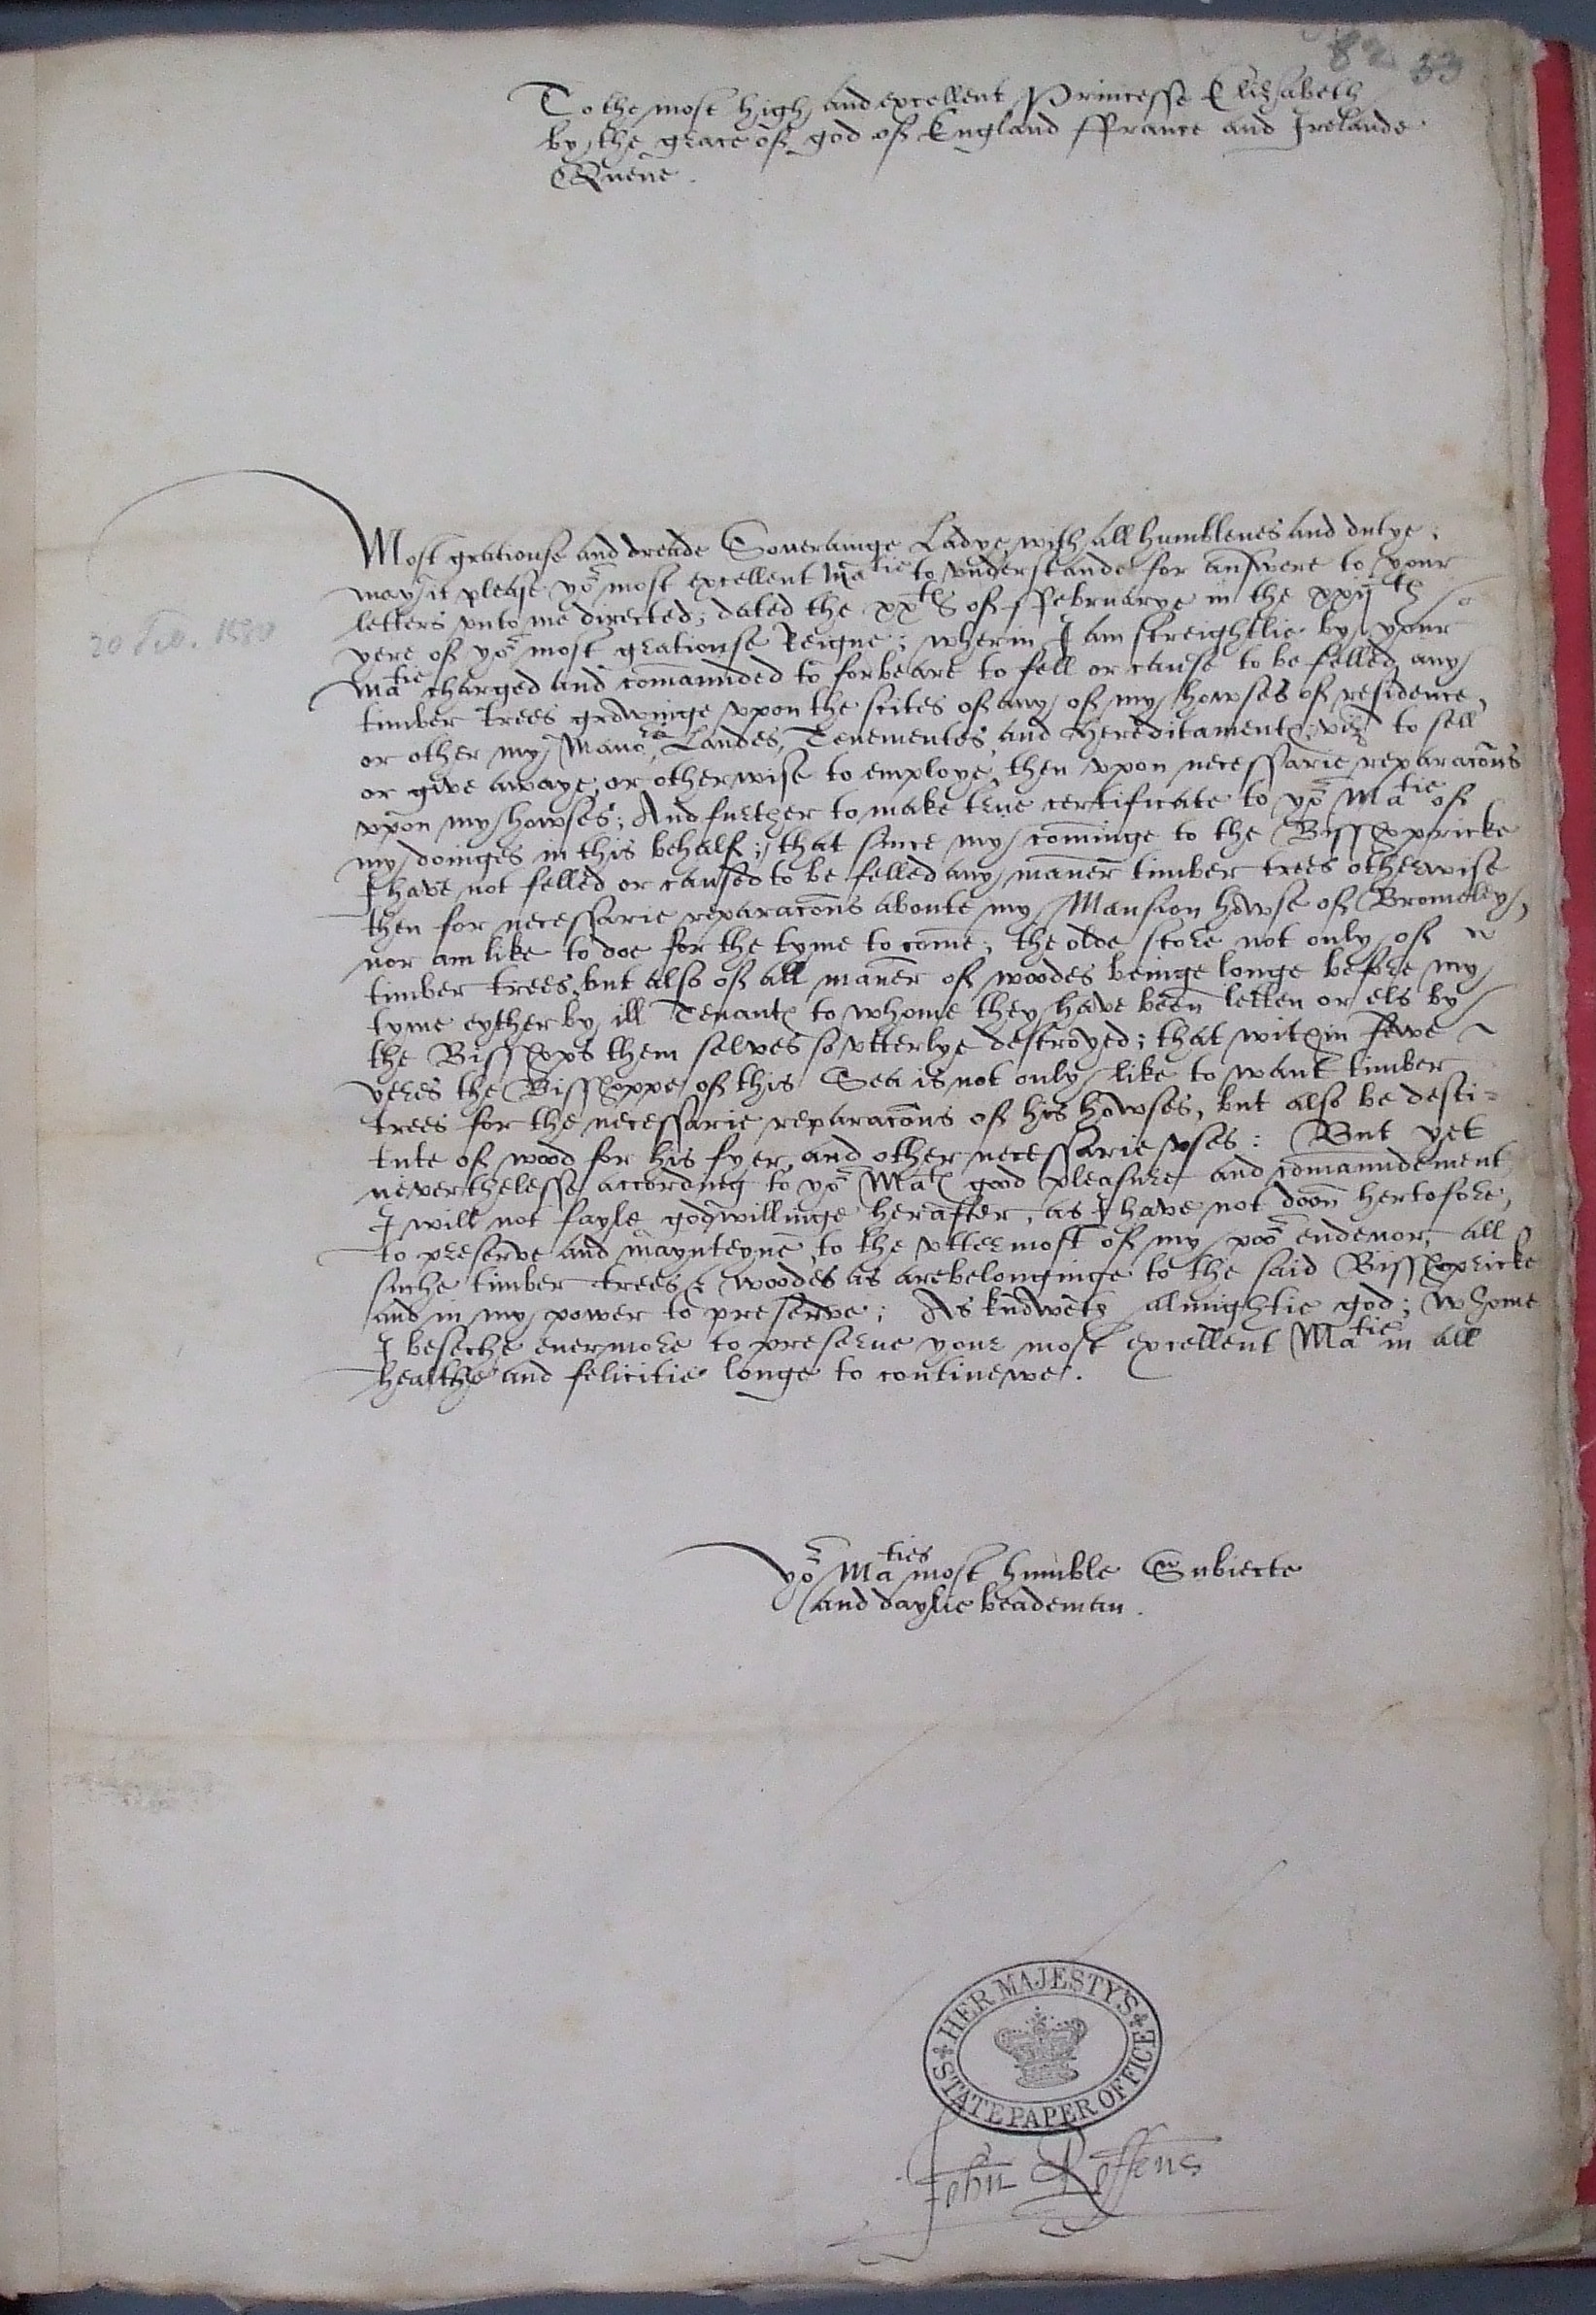 82 33
To the most high and excellent Princesse Elizabeth
by the grace of god of England ffrance and Irelande
Quene.
Most gratiouse and dreade Soverainge Ladye, with all humblenes and dutye;
may it please yor most excellent Matie to understande for answere to your
letters unto me directed; dated the xxth of ffebruarye in the xxijth
20 Feb. 1580
yere of yor most gratiouse Reigne; wherin I am streightlie by your
Matie charged and comaunded to forbeare to fell or cause to be felled any
timber trees growinge upon the scites of any of my howses of residence,
or other my Manors, Landes, Tenementes and Hereditamentes; viz to sell
or give awaye, or otherwise to employe, then upon necessarie reparacons
upon my howses; And further to make true certificate to yor Matie of
my doinges in this behalf; that since my cominge to the Bisshoppricke
I have not felled or caused to be felled any maner timber trees otherwise
then for necessarie reparacons aboute my Mansion howse of Bromeley,
nor am like to doe for the tyme to come, the olde store not only of
timber trees, but also of all maner of woodes beinge longe before my
tyme eyther by ill Tenantes to whome they have been letten or els by
the Bisshopps them selves so utterlye destroyed; that within fewe
yeres the Bisshoppe of this Sea is not only like to want timber
trees for the necessarie reparacons of his howses, but also be desti=
tute of wood for his fyer, and other necessarie uses: But yet
neverthelesse according to yor Maties good pleasure and comaundement
I will not fayle god willinge herafter, as I have not doon hertofore,
to preserve and maynteyne to the uttermost of my poor endevor, all
suche timber trees & woodes as are belonginge to the said Bisshopricke
and in my power to preserve; As knoweth almightie god; whome
I beseche evermore to preserve your most excellent Matie in all
healthe and felicitie longe to continewe.
yor Maties most humble Subiecte
and daylie beademan.
HER MAJESTY'S STATE PAPER OFFICE
John Roffens